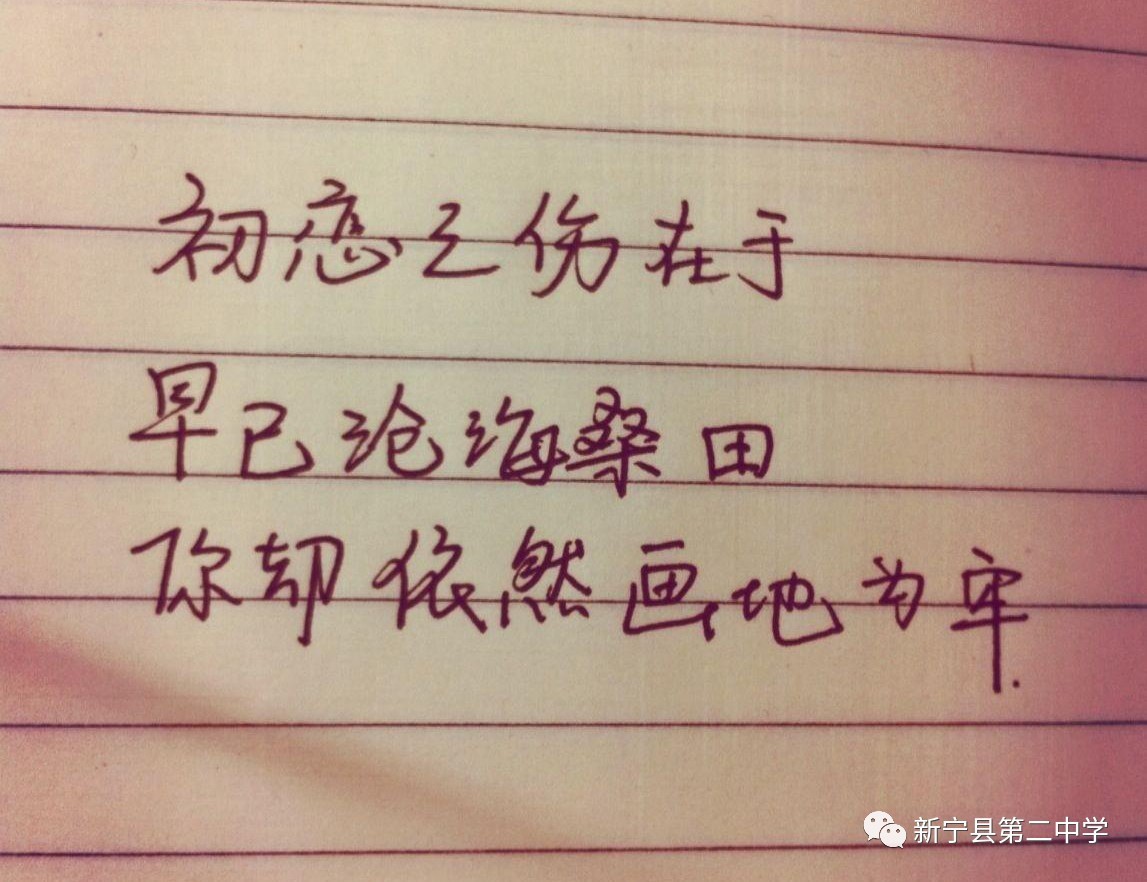 初恋之伤在于
早已沧海桑田
你却依然画地为牢.
新宁县第二中学